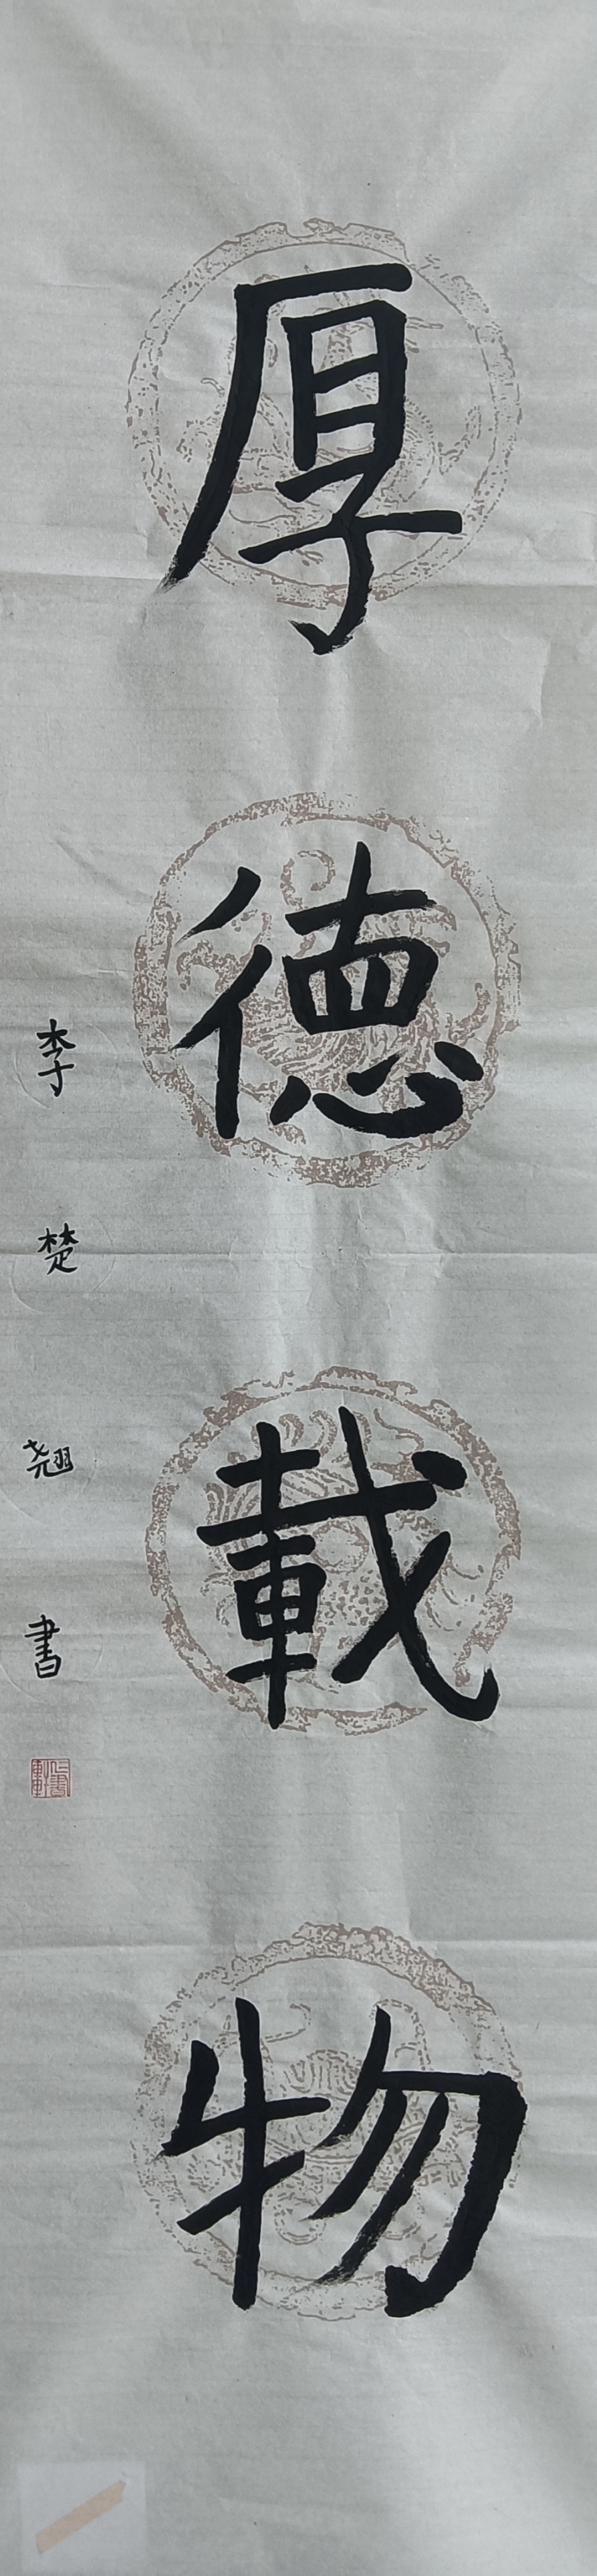 厚德載物
李楚翘書